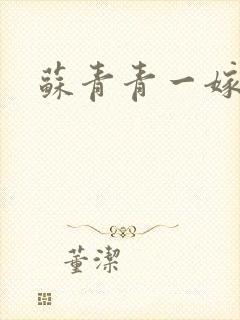 蘇青青一嫁
董潔